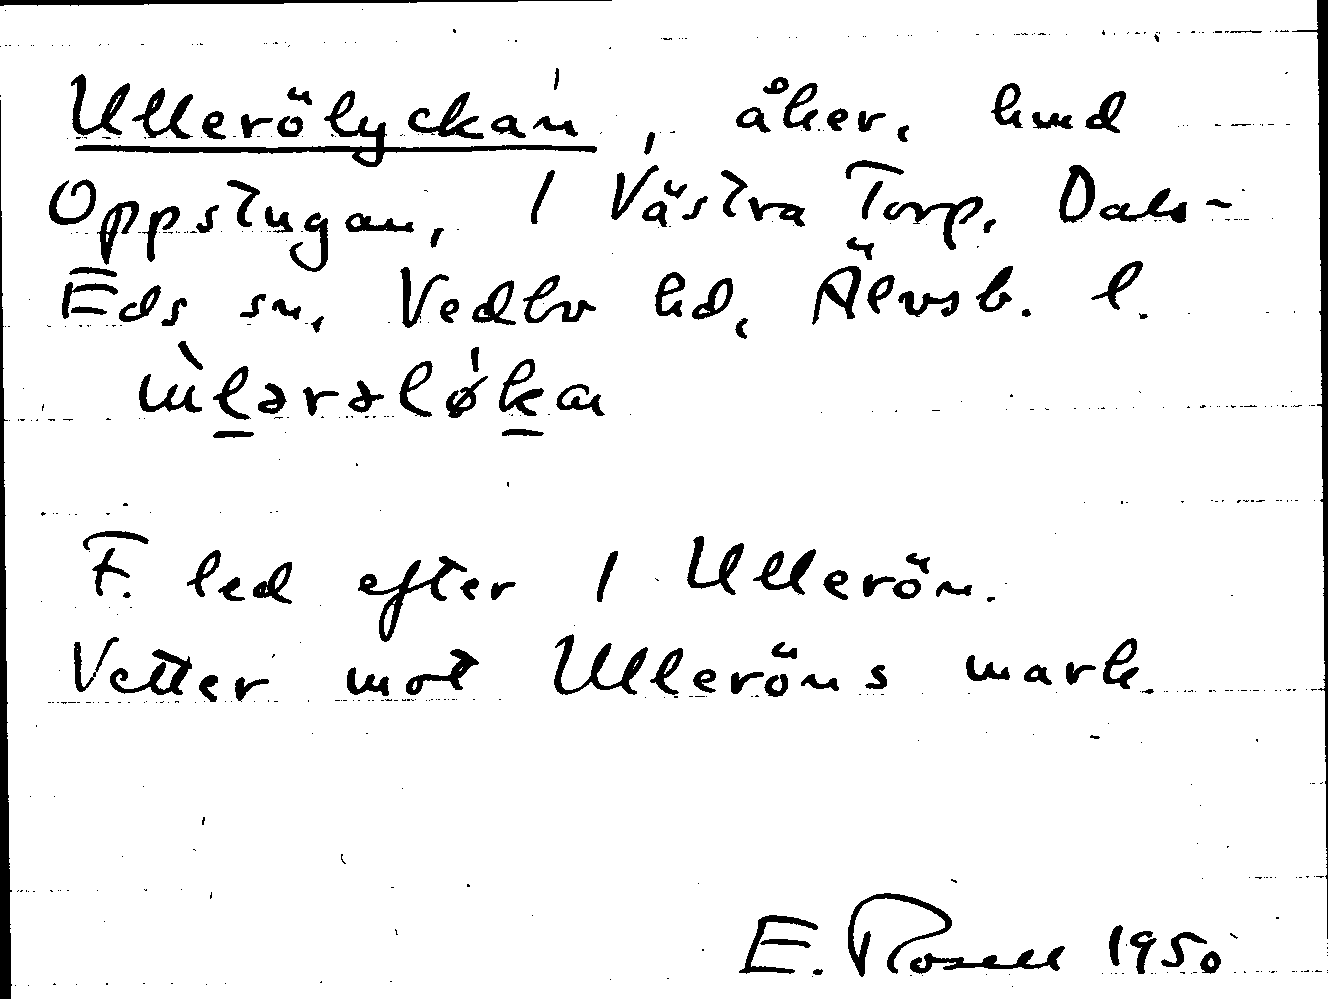 Ullerölyckan, åker, hmd
Oppstugan, 1 Västra Torp, Dals-
Eds sn, Vedbo hd, Älvsb. l.
ùlərəlǿkan
F. led efter 1 Ullerön.
Vetter mot Ulleröns mark.
E. Rosell 1950